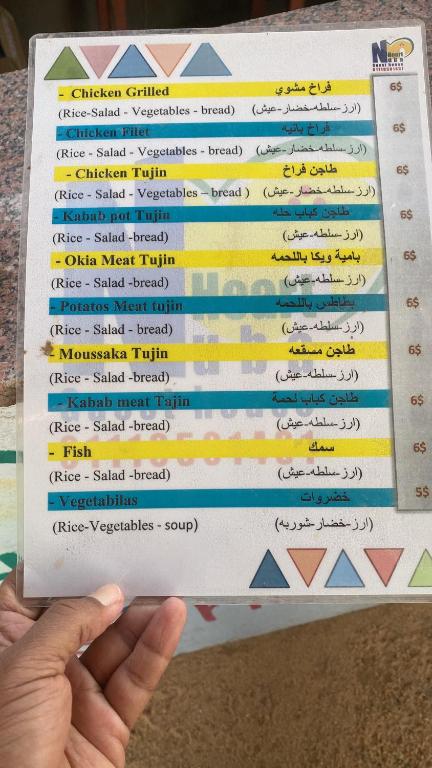 Heart
Nuba
Guest house
- Chicken Grilled فراخ مشوي 6$
(Rice-Salad - Vegetables - bread) (ارز-سلطه-خضار-عيش)
- Chicken Filet فراخ بانيه 6$
(Rice - Salad - Vegetables - bread) (ارز-سلطه-خضار-عيش)
- Chicken Tujin طاجن فراخ 6$
(Rice - Salad - Vegetables – bread ) (ارز-سلطه-خضار-عيش)
- Kabab pot Tujin طاجن كباب حله 6$
(Rice - Salad -bread) (ارز-سلطه-عيش)
- Okia Meat Tujin بامية ويكا باللحمه 6$
(Rice - Salad -bread) (ارز-سلطه-عيش)
- Potatos Meat tujin بطاطس باللحمه 6$
(Rice - Salad - bread) (ارز-سلطه-عيش)
- Moussaka Tujin طاجن مسقعه 6$
(Rice - Salad -bread) (ارز-سلطه-عيش)
- Kabab meat Tajin طاجن كباب لحمة 6$
(Rice - Salad -bread) (ارز-سلطه-عيش)
- Fish سمك 6$
(Rice - Salad -bread) (ارز-سلطه-عيش)
- Vegetabilas خضروات 5$
(Rice-Vegetables - soup) (ارز-خضار-شوربه)